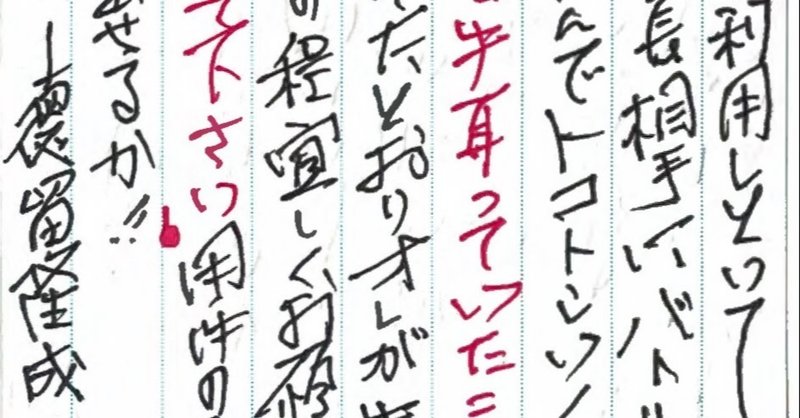 利用しといて
長相手にバトル
んでトコトン
牛耳っていたこ
たとおりオレが
の程宜しくお願
て下さい用件の
せるか!!
徳留隆成